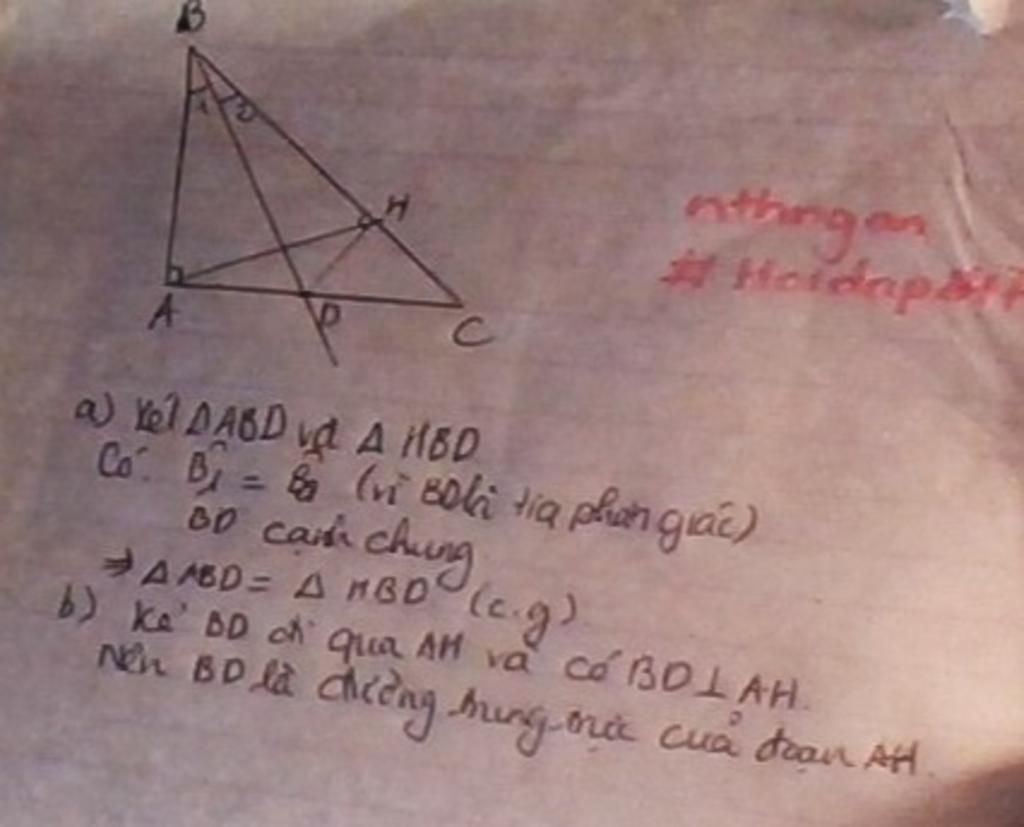 B
1 2
H
A
D
C
nthngan
# Hoidap247
a) Xét ΔABD và Δ HBD
Có: B̂1 = B̂2 (vì BD là tia phân giác)
BD cạnh chung
⇒ ΔABD = Δ HBD (c.g)
b) Kẻ BD đi qua AH và có BD⊥AH.
Nên BD là đường trung trực của đoạn AH.